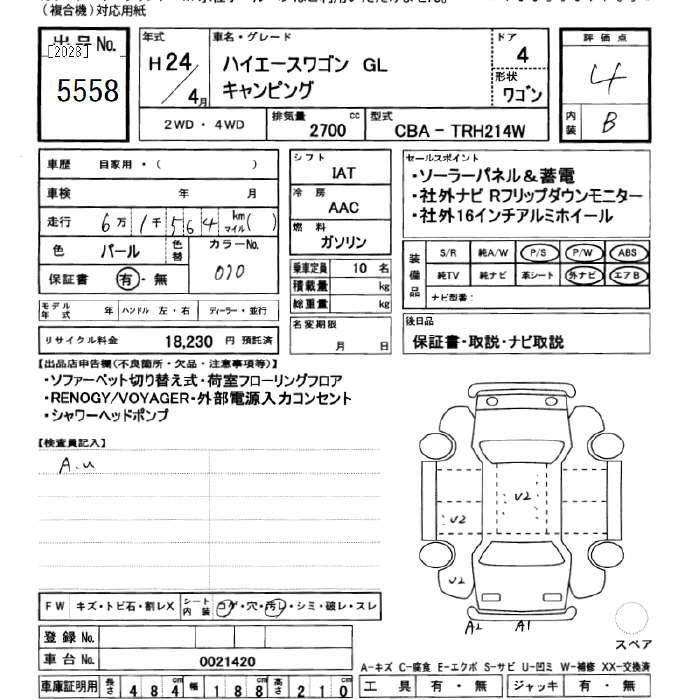 (複合機)対応用紙
出品No.
[2028]
5558
年式
H24/4月
車名・グレード
ハイエースワゴン GL
キャンピング
ドア
4
形状
ワゴン
評価点
4
内装
B
2WD・4WD
排気量
2700 cc
型式
CBA - TRH214W
車歴 自家用・( )
車検 年 月
走行 6万1千564 km マイル( )
色 パール 色替 カラーNo. 070
保証書 有・無
シフト
IAT
冷房
AAC
燃料
ガソリン
乗車定員 10 名
積載量 kg
総重量 kg
セールスポイント
・ソーラーパネル&蓄電
・社外ナビ Rフリップダウンモニター
・社外16インチアルミホイール
装備品
S/R 純A/W P/S P/W ABS
純TV 純ナビ 革シート 外ナビ エアB
ナビ型番:
モデル年式 年 ハンドル 左・右 ディーラー・並行
リサイクル料金 18,230 円 預託済
名変期限
月 日
後日品
保証書・取説・ナビ取説
【出品店申告欄(不良箇所・欠品・注意事項等)】
・ソファーベット切り替え式・荷室フローリングフロア
・RENOGY/VOYAGER・外部電源入力コンセント
・シャワーヘッドポンプ
【検査員記入】
A.u
U2
U2
U2
A2 A1
スペア
FW キズ・トビ石・割レX シート内装 コゲ・穴・汚レ・シミ・破レ・スレ
登録No.
車台No. 0021420
車庫証明用 長さ 484 cm 幅 188 cm 高さ 210 cm
A-キズ C-腐食 E-エクボ S-サビ U-凹ミ W-補修 XX-交換済
工具 有・無 ジャッキ 有・無